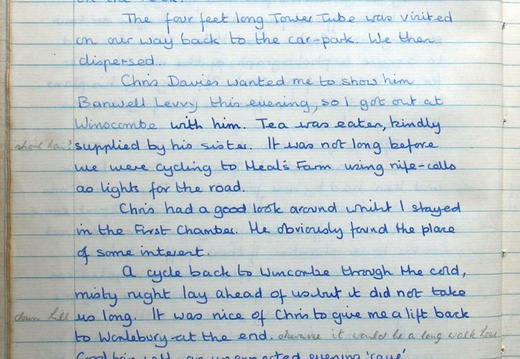 The four feet long Tower Tube was visited
on our way back to the car-park. We then
dispersed.
Chris Davies wanted me to show him
Banwell Levvy this evening, so I got out at
Winscombe with him. Tea was eaten, kindly
supplied by his sister. It was not long before
we were cycling to Heal's Farm using nife-cells
as lights for the road.
Chris had a good look around whilst I stayed
in the First Chamber. He obviously found the place
of some interest.
A cycle back to Winscombe through the cold,
misty night lay ahead of us but it did not take
down hill us long. It was nice of Chris to give me a lift back
to Worlebury at the end. otherwise it would be a long walk home
an unexpected evening 'cave'